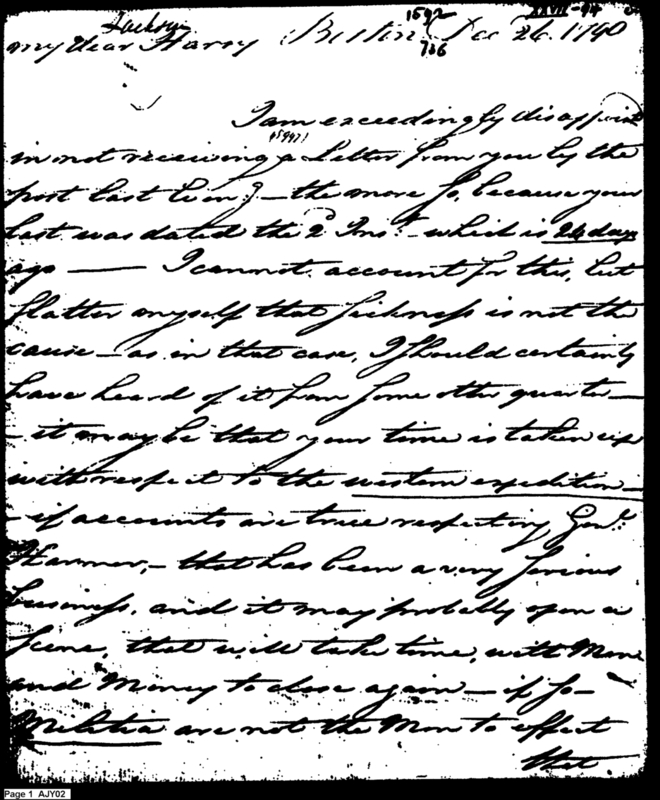 Jackson
1592
XXVII-94
My dear Harry Boston Dec 26. 1790
736
I am exceedingly disappoint
in not receiving a Letter from you by the
post last Eveng. – the more so, because your
last was dated the 2d Inst. – which is 24 days
ago — I cannot account for this, but
flatter myself that sickness is not the
cause – as in that case, I should certainly
have heard of it from some other quarter —
– it may be that your time is taken up
with respect to the western expedition –
– if accounts are true respecting Genl.
Harmer, – that has been a very serious
business, and it may probably open a
scene, that will take time, with Men
and Money to close again – if so –
Militia are not the Men to effect
that.
Page 1 AJY02